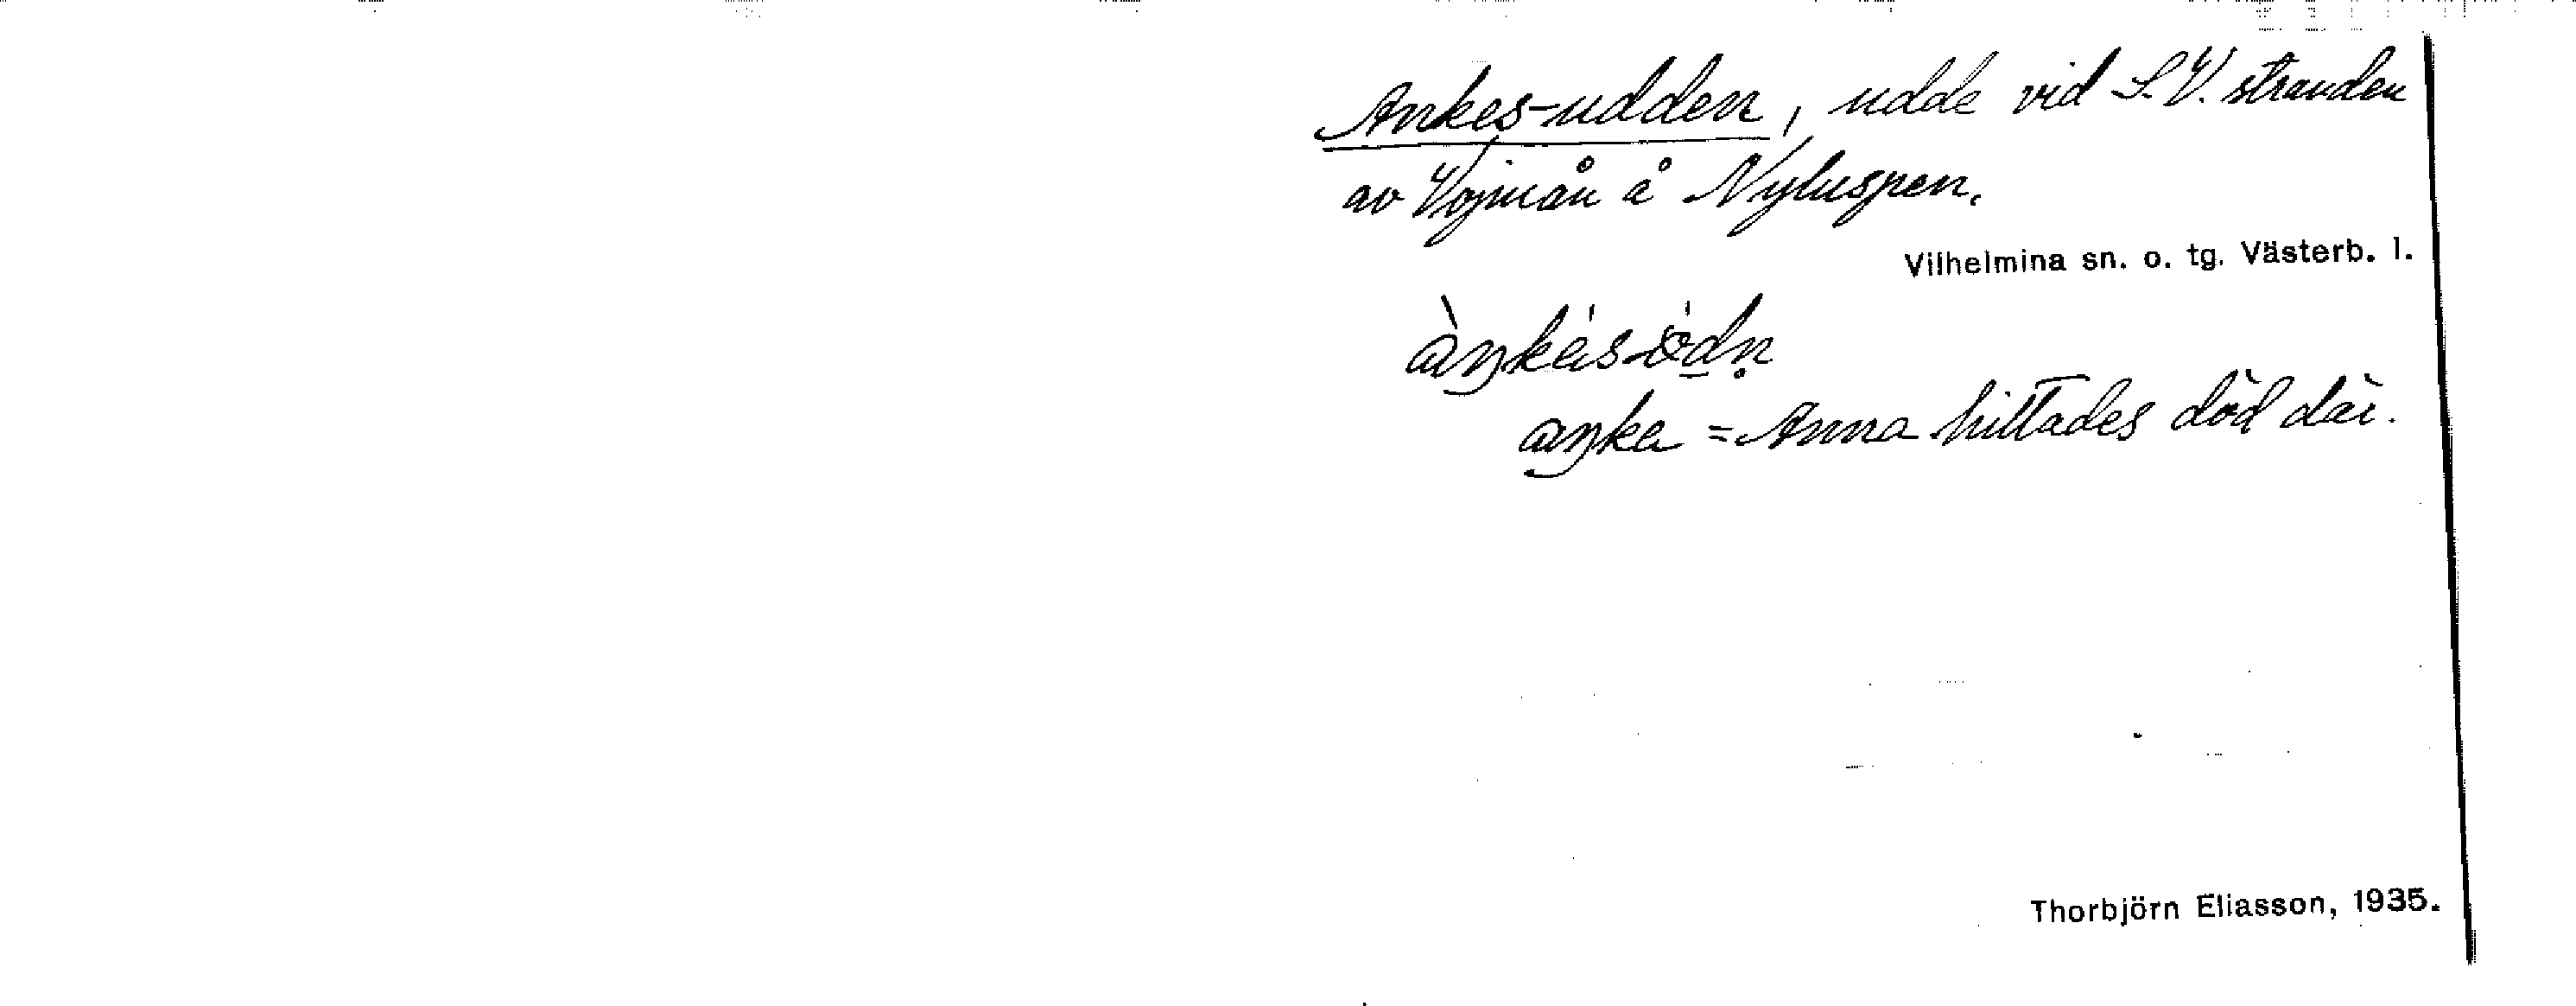 Ankes-udden, udde vid S.V. stranden
av Vojmån å Nyluspen.
Vilhelmina sn. o. tg. Västerb. l.
àŋkésödṇ
aŋka = Anna hittades död där.
Thorbjörn Eliasson, 1935.